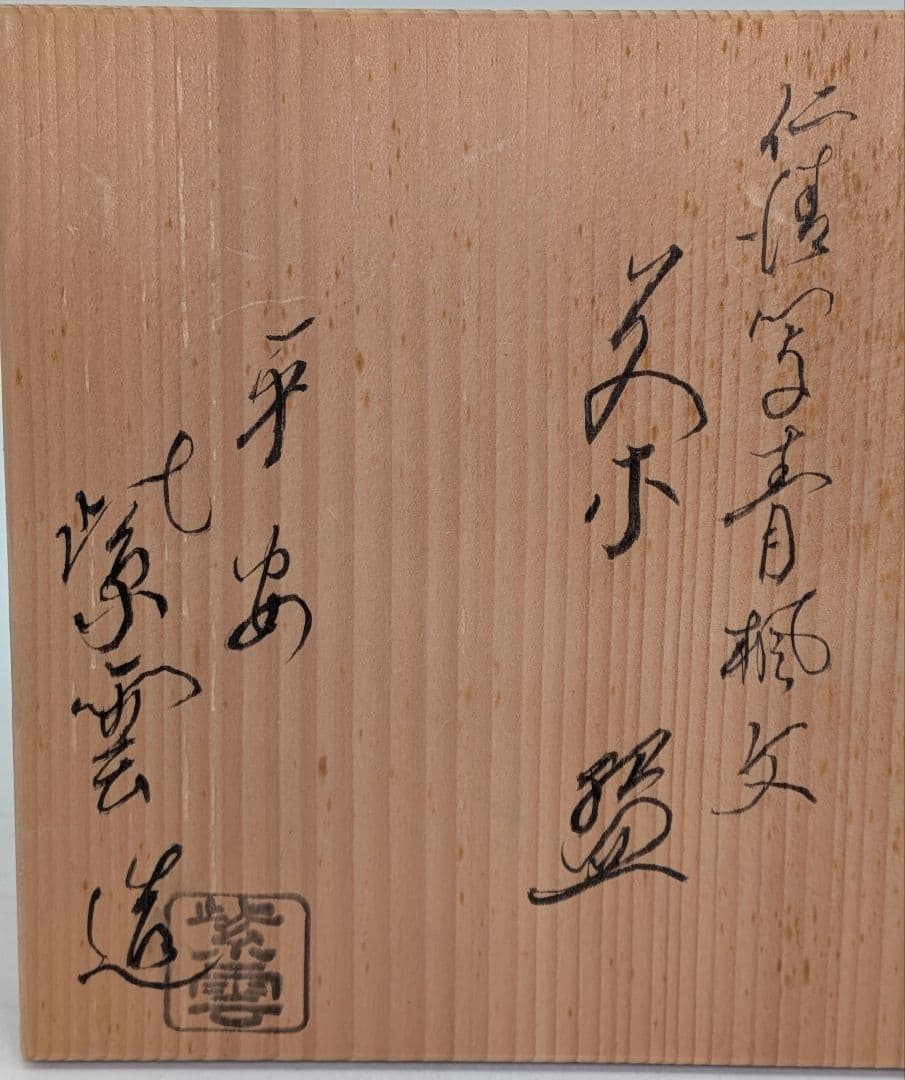 仁清写青楓文
茶盌
平安
紫雲造
紫雲